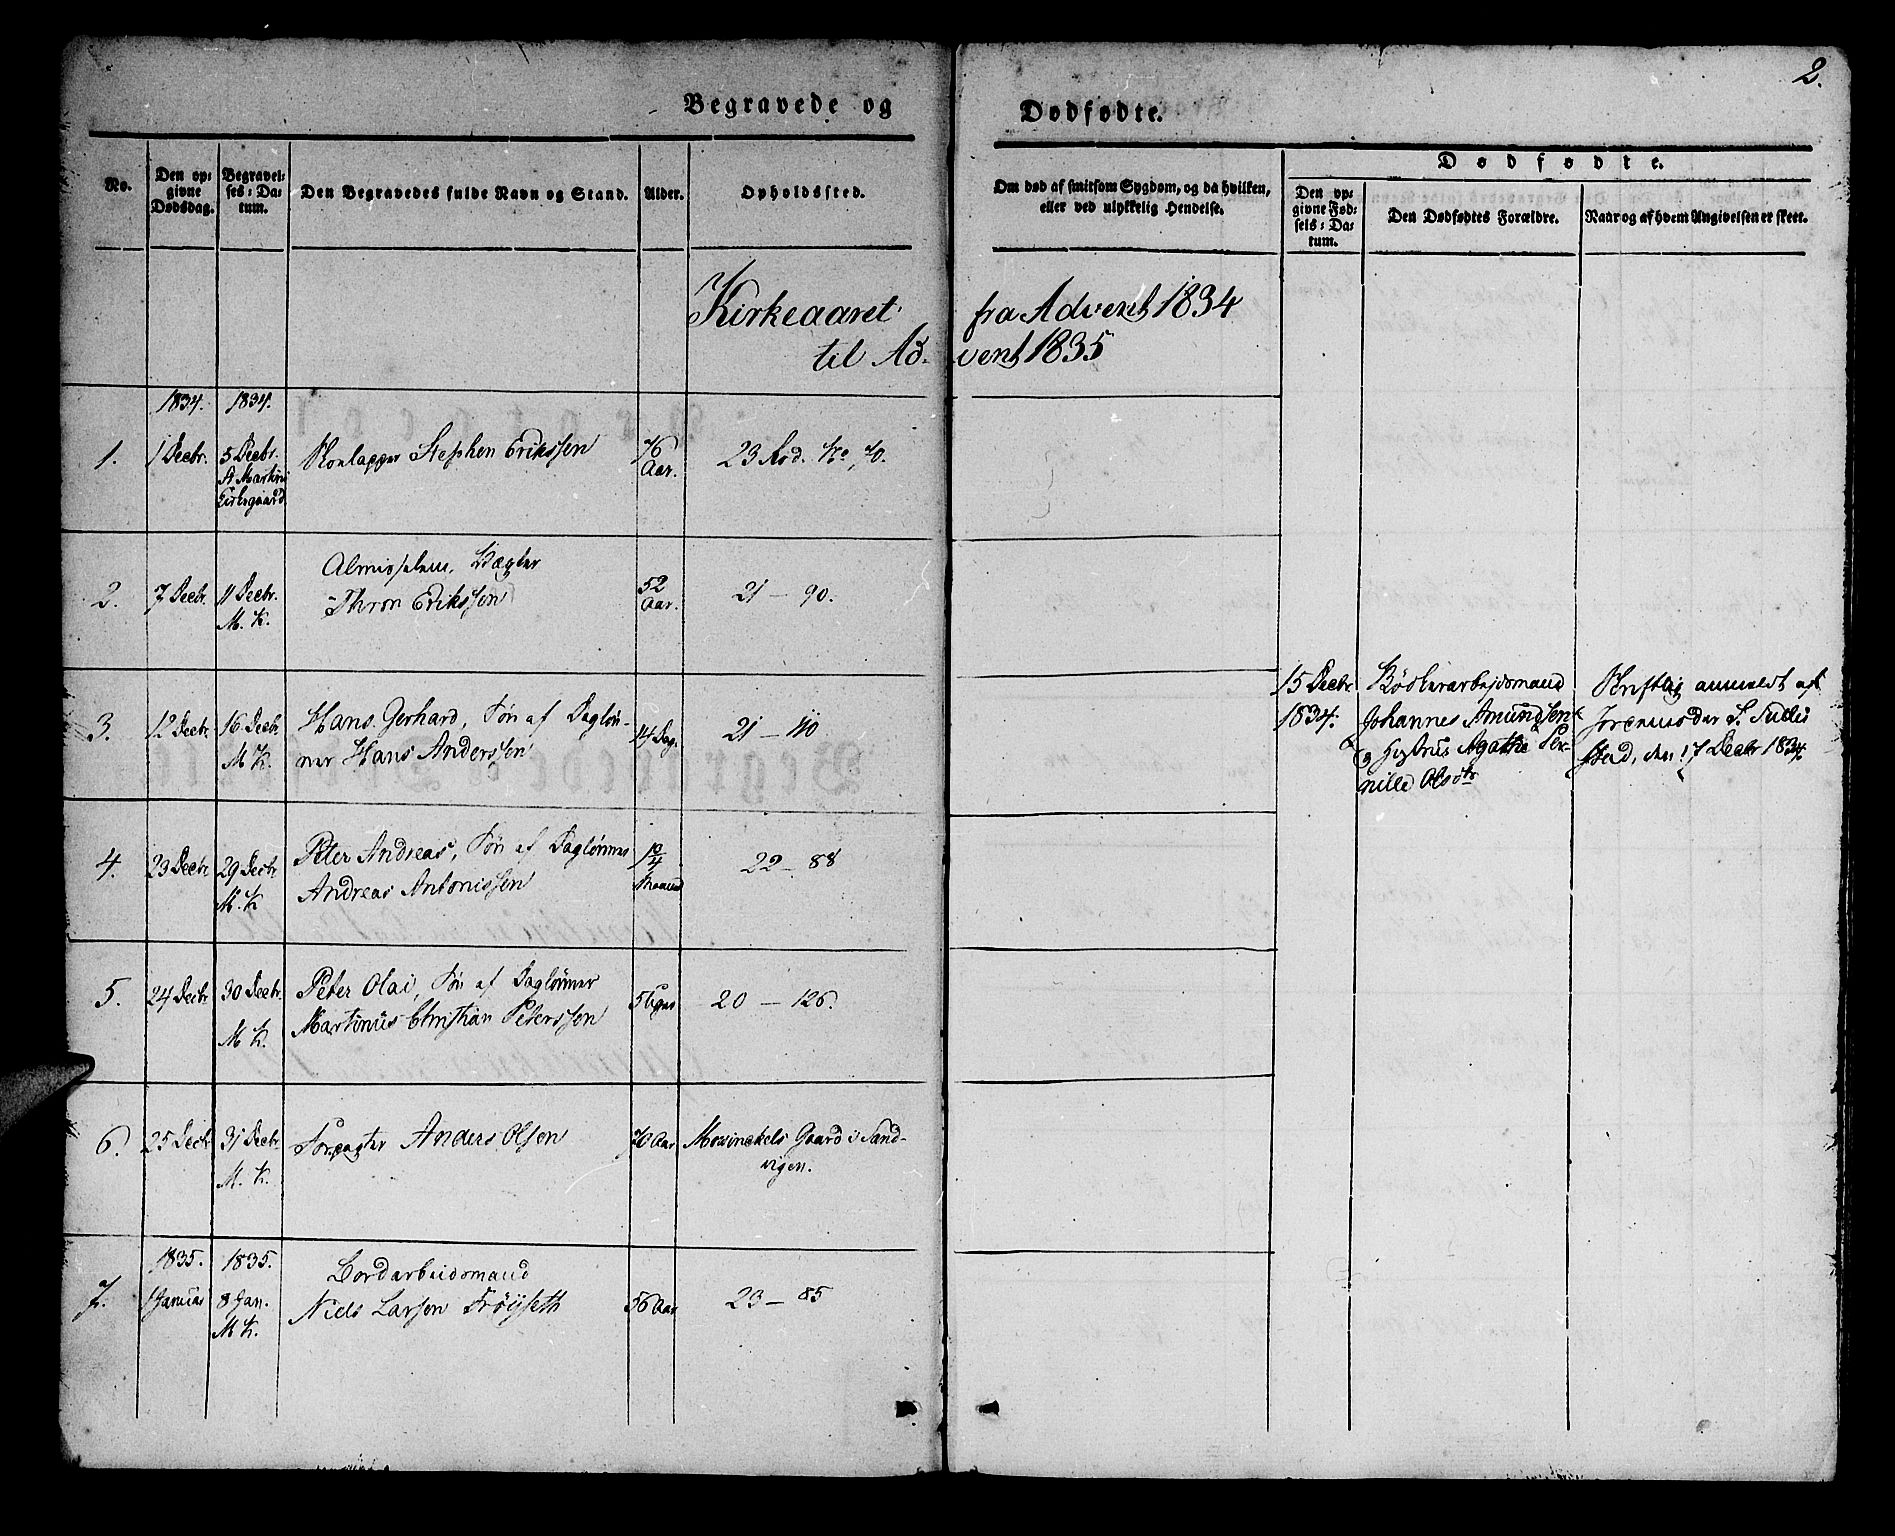 2.
Begravede og Dødfødte.
No.
Den op-
givne
Dødsdag.
Begravel-
ses-Da-
tum.
Den Begravedes fulde Navn og Stand.
Alder.
Opholdssted.
Om død af smitsom Sygdom, og da hvilken,
eller ved ulykkelig Hendelse.
Dødfødte.
Den op-
givne Fød-
sels-Da-
tum.
Den Dødfødtes Forældre.
Naar og af hvem Angivelsen er skeet.
Kirkeaaret fra Advent 1834
til Ad- vent 1835
1834. 1834.
1. 1 Decbr. 5 Decbr.
St Martini
Kirkegaard
Stephen Erikssen
76
Aar.
23 Rod. No, 70.
2. 7 Decbr. 11 Decbr.
M. K.
Almisselem, Vægter
Thron Erikssen
52
Aar.
21 — 90.
3. 12 Decbr 16 Decbr
M K.
Hans Gerhard, Søn af Dagløn-
ner Hans Anderssen
14 Dag.
21 — 110
15 Decbr
1834.
Bødkerarbejdsmand
Johannes Amundsen
og Hustrue Agathe Per-
nille Olsdtr
Skriftlig anmeldt af
Jordemoder S.
stad, den 17 Decbr 1834.
4. 23 Decbr 29 Decbr
M. K
Peter Andreas, Søn af Daglønner
Andreas Antonissen
Maaned
22 — 88
5. 24 Decbr 30 Decbr.
M K.
Peter Olai, Søn af Daglønner
Martinus Christian Peterssen
5 Uger
20 — 126.
6. 25 Decbr 31 Decbr.
M. K.
Forpagter Anders Olsen
70 Aar
Mowinckels Gaard i Sand-
vigen.
1835. 1835.
7. 1 Januar 8 Jan.
M K.
Bordarbeidsmand
Niels Larsen Frøyseth
56 Aar
23 — 85